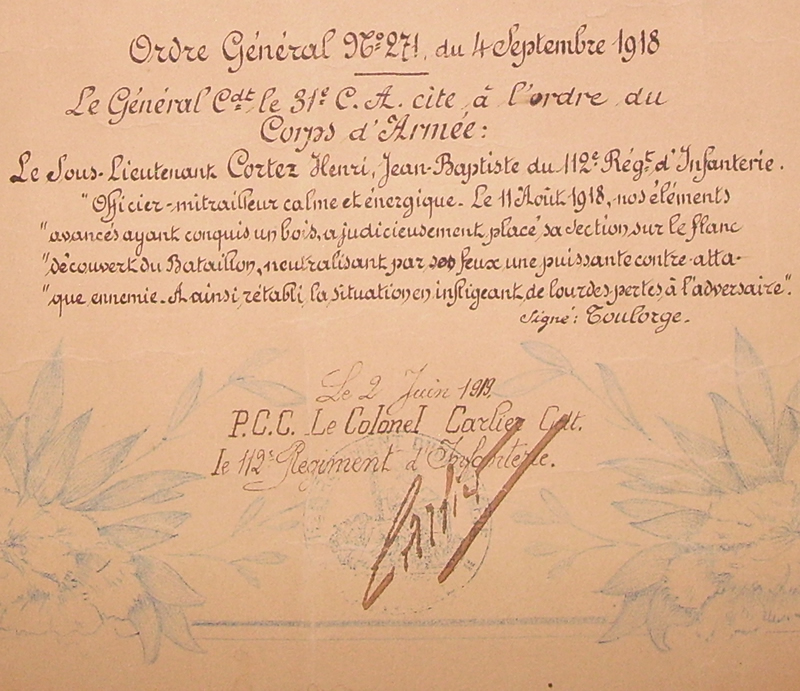 Ordre Général Nº 271, du 4 Septembre 1918
Le Général Cdt le 31e C. A. cite à l'ordre du
Corps d'Armée :
Le Sous-Lieutenant Cortez Henri, Jean-Baptiste du 112e Régt d'Infanterie.
"Officier-mitrailleur calme et énergique. Le 11 Août 1918, nos éléments
"avancés ayant conquis un bois, a judicieusement placé sa section sur le flanc
"découvert du Bataillon, neutralisant par ses feux une puissante contre-atta-
"que ennemie. A ainsi rétabli la situation en infligeant de lourdes pertes à l'adversaire".
Signé : Toulorge.
Le 2 Juin 1919.
P.C.C. Le Colonel Carlier Cdt.
le 112e Régiment d'Infanterie.
Carlier